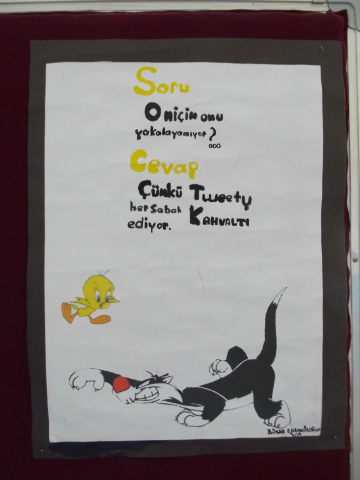 Soru
O niçin onu
yakalayamıyor?
Cevap
Çünkü Tweety
her sabah KAHVALTI
ediyor.